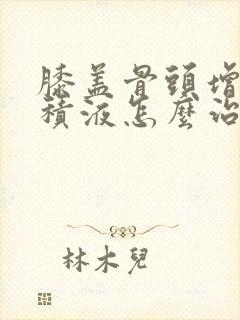 膝盖骨頭增
積液怎麼治
林木兒